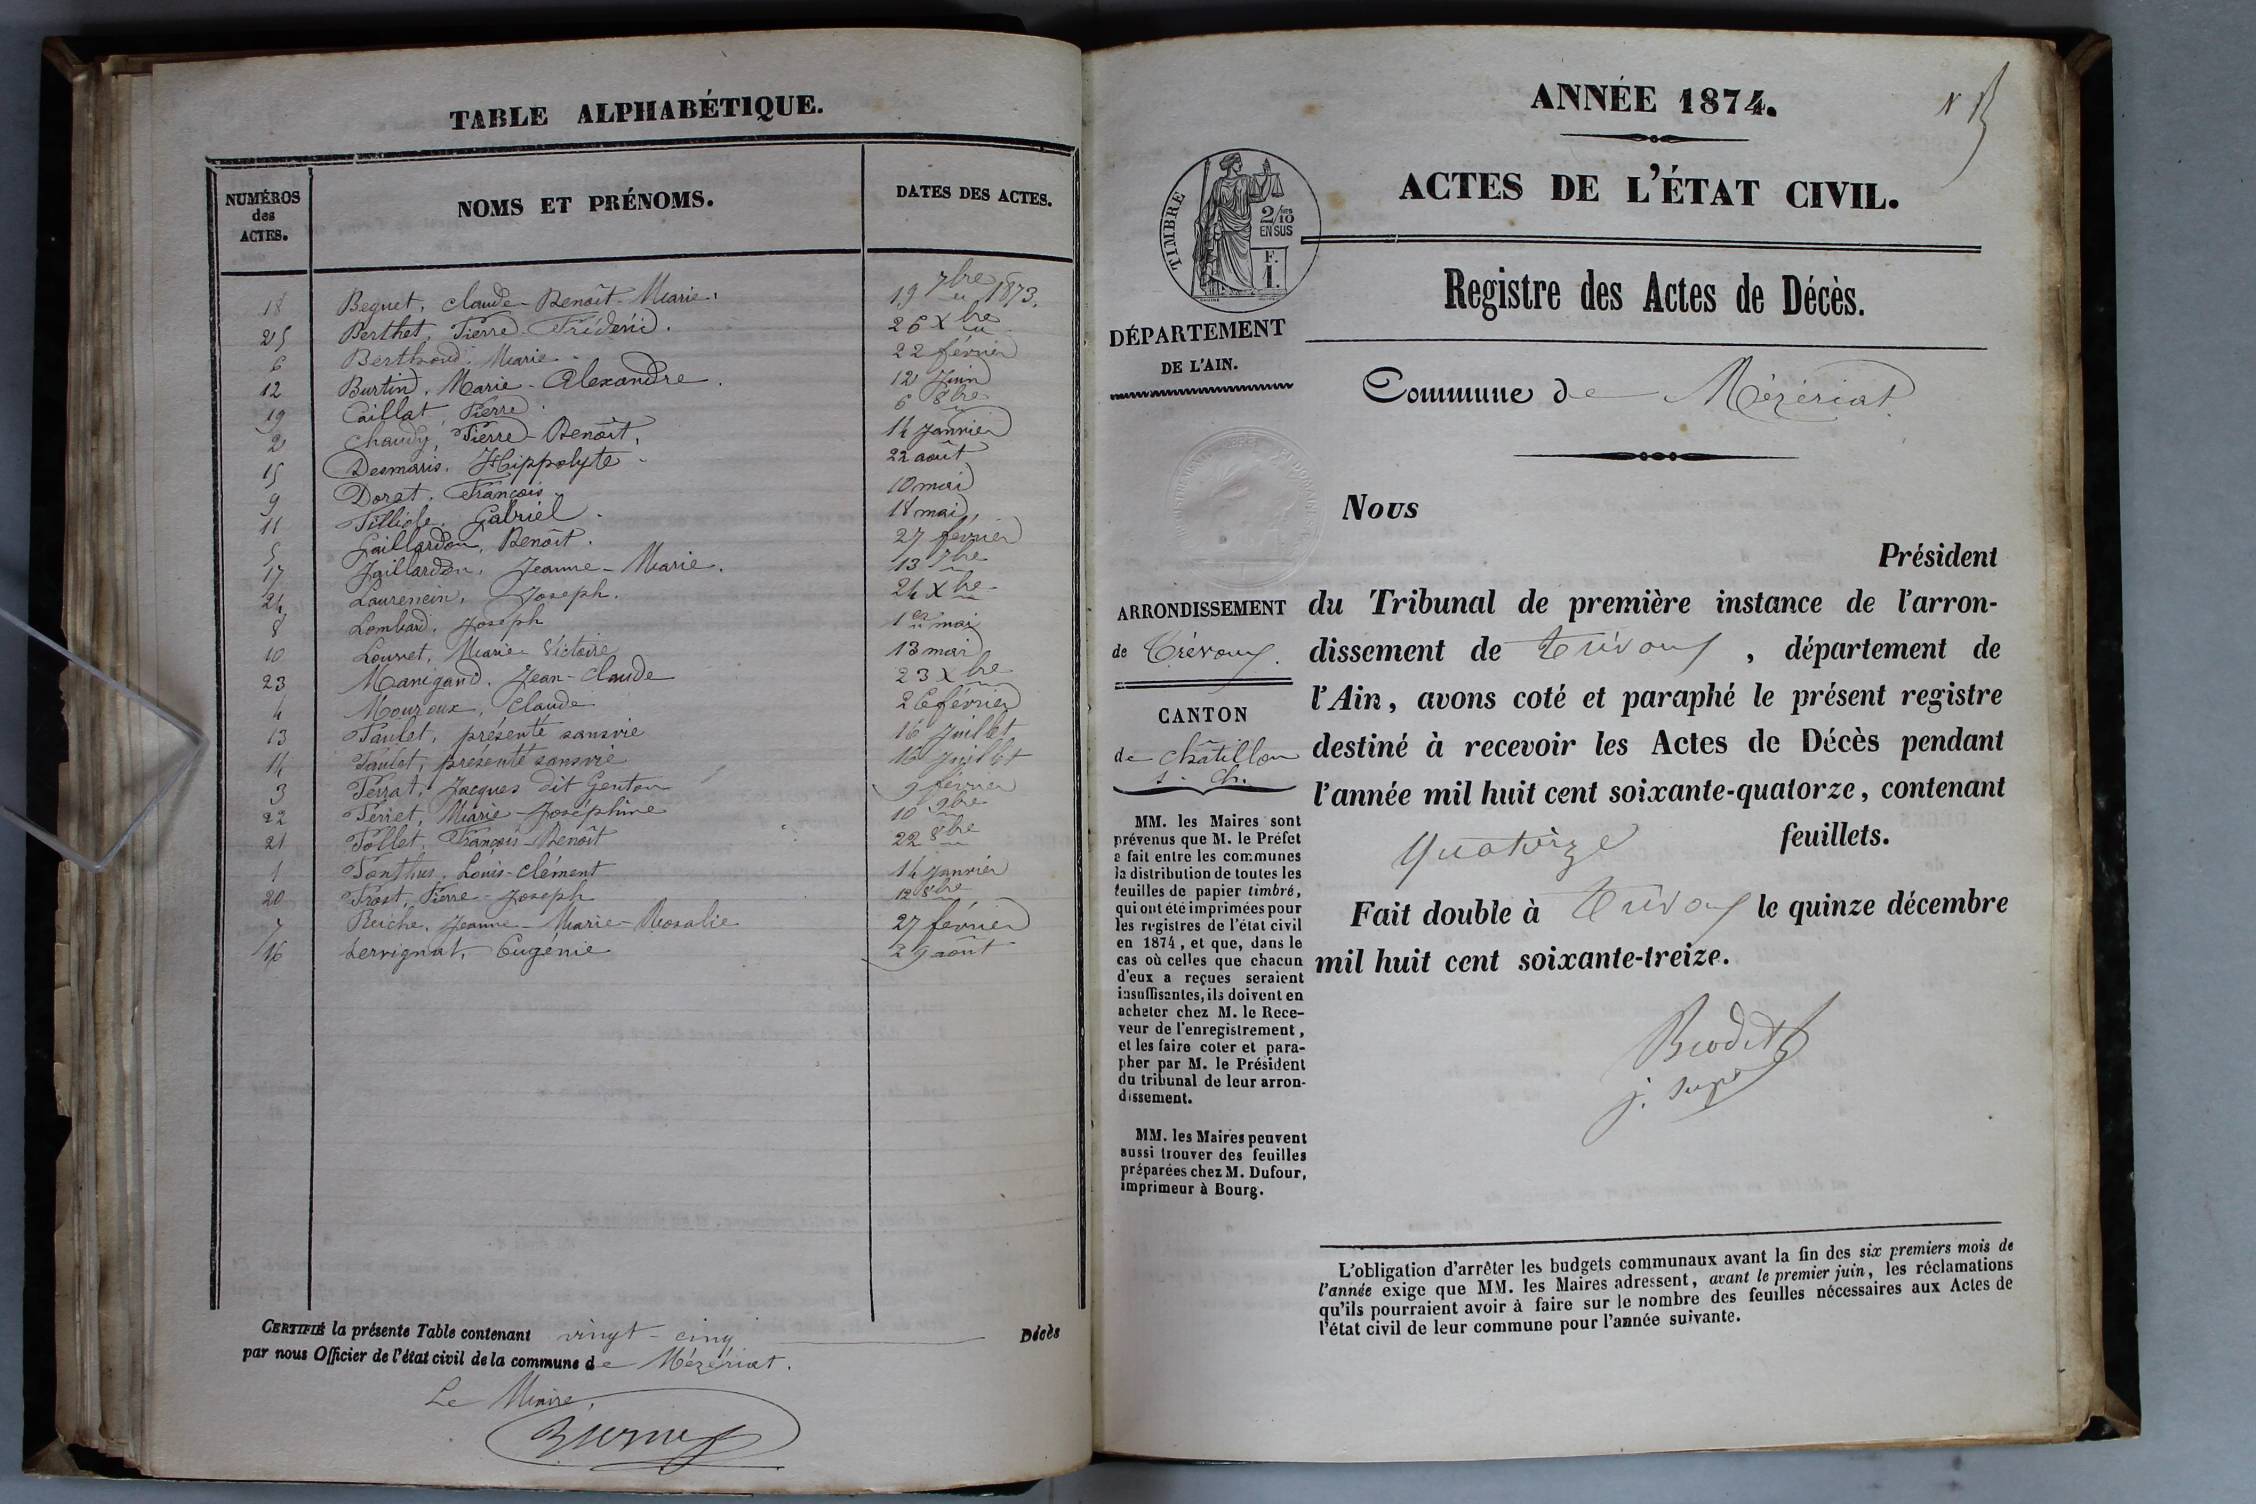 TABLE ALPHABÉTIQUE.
NUMÉROS des ACTES. NOMS ET PRÉNOMS. DATES DES ACTES.
18 Bequet, Claude-Benoît-Marie. 19 7bre 1873.
25 Berthet, Pierre-Frédéric. 26 Xbre
6 Berthoud, Marie. 22 février
12 Burtin, Marie-Alexandre. 12 Juin
19 Caillat, Pierre. 6 8bre
2 Chaudy, Pierre-Benoît, 14 Janvier
15 Desmaris, Hippolyte. 22 août
9 Dorat, François. 10 mai
11 Gabriel. 18 mai,
5 Gaillardon, Benoît. 27 février
17 Gaillardon, Jeanne-Marie. 13 7bre
24 Laurencin, Joseph. 24 Xbre
8 Lombard, Joseph 1er mai
10 Louvet, Marie Victoire 13 mai
23 Manigand, Jean-Claude 23 Xbre
4 Mouroux, Claude 26 février
13 Paulet, présenté sans vie 16 Juillet
14 Paulet, présenté sans vie 16 Juillet
3 Perrat, Jacques dit Genton 9 février
22 Perret, Marie-Joséphine 10 9bre
21 Pollet, François-Benoît 22 8bre
1 Ponthus, Louis-Clément 14 Janvier
20 Prost, Pierre-Joseph 12 8bre
7 Reiche, Jeanne-Marie-Rosalie 27 février
16 Servignat, Eugénie 29 août
CERTIFIÉ la présente Table contenant vingt-cinq Décès
par nous Officier de l'état civil de la commune de Mézériat.
Le Maire,
ANNÉE 1874.
ACTES DE L'ÉTAT CIVIL.
TIMBRE
2/10
EN SUS
F.
1.
Registre des Actes de Décès.
DÉPARTEMENT
DE L'AIN.
Commune de Mézériat
Nous
Président
du Tribunal de première instance de l'arron-
dissement de Trévoux, département de
l'Ain, avons coté et paraphé le présent registre
destiné à recevoir les Actes de Décès pendant
l'année mil huit cent soixante-quatorze, contenant
quatorze feuillets.
Fait double à Trévoux le quinze décembre
mil huit cent soixante-treize.
j. sup
ARRONDISSEMENT
de Trévoux.
CANTON
de Châtillon
s. Ch.
MM. les Maires sont
prévenus que M. le Préfet
a fait entre les communes
la distribution de toutes les
feuilles de papier timbré,
qui ont été imprimées pour
les registres de l'état civil
en 1874, et que, dans le
cas où celles que chacun
d'eux a reçues seraient
insuffisantes, ils doivent en
acheter chez M. le Rece-
veur de l'enregistrement,
et les faire coter et para-
pher par M. le Président
du tribunal de leur arron-
dissement.
MM. les Maires peuvent
aussi trouver des feuilles
préparées chez M. Dufour,
imprimeur à Bourg.
L'obligation d'arrêter les budgets communaux avant la fin des six premiers mois de
l'année exige que MM. les Maires adressent, avant le premier juin, les réclamations
qu'ils pourraient avoir à faire sur le nombre des feuilles nécessaires aux Actes de
l'état civil de leur commune pour l'année suivante.